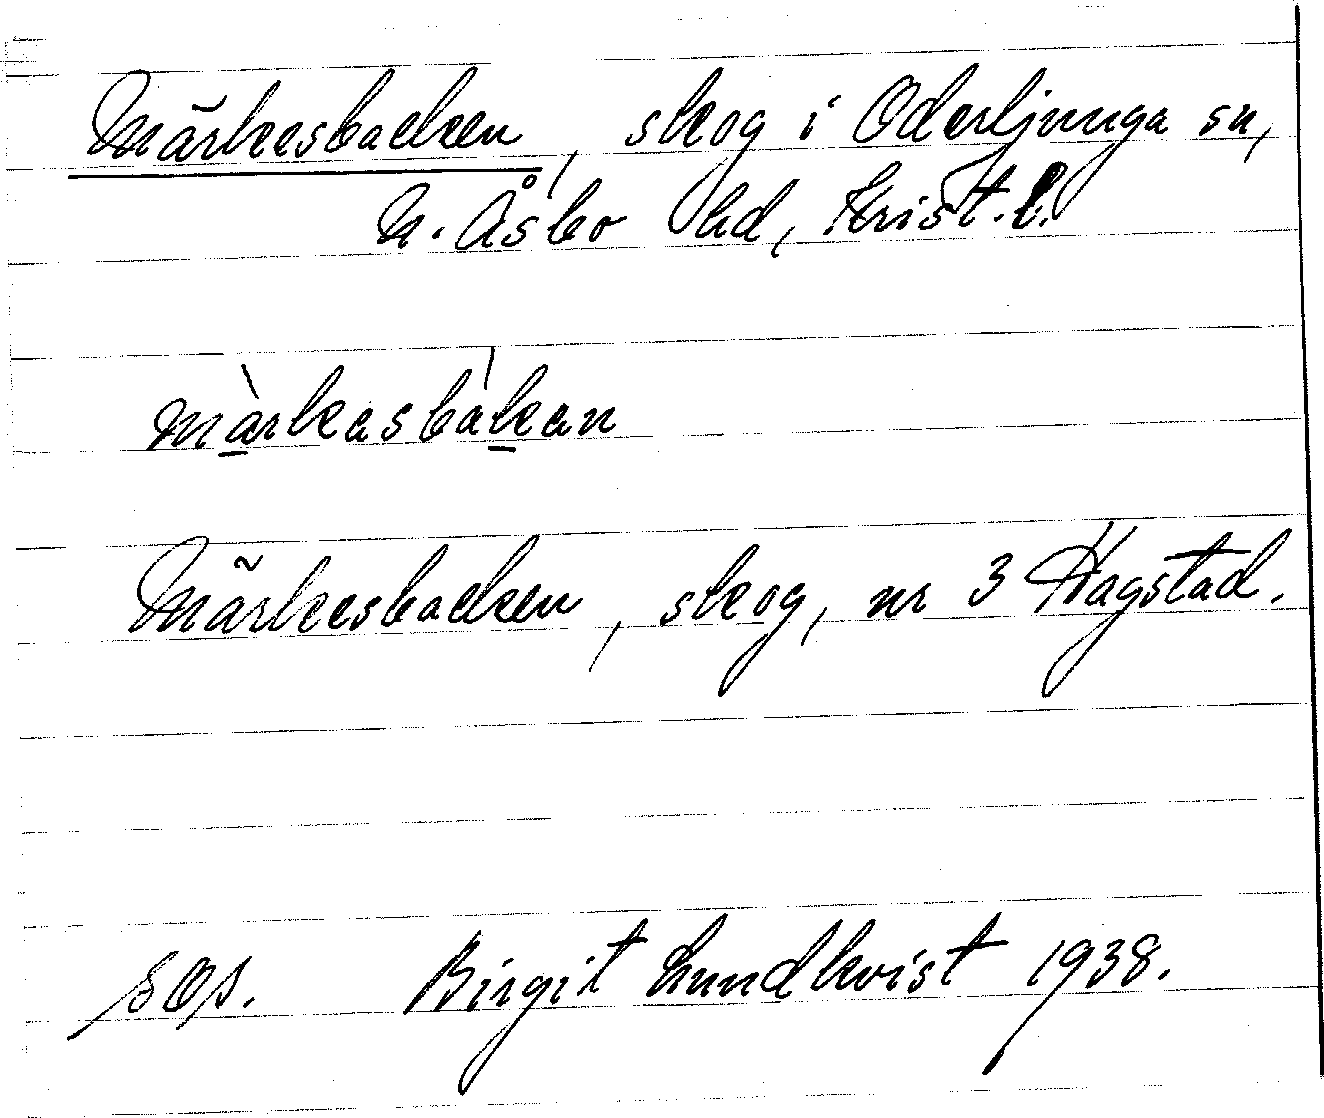 Märkesbacken, skog i Oderljunga sn,
N. Åsbo hd, Krist. l.
màrkasbákan
Märkesbacken, skog, nr 3 Hagstad.
Birgit Lundkvist 1938.